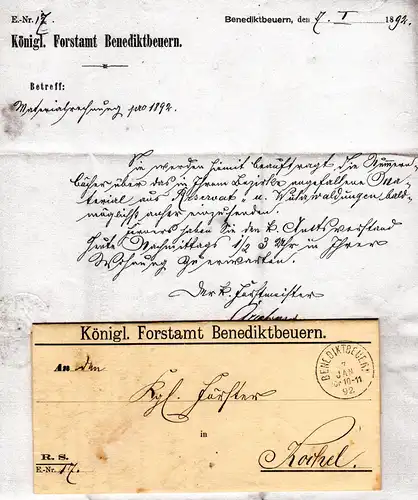 E.-Nr. 17
Benediktbeuern, den 7. I 1892.
Königl. Forstamt Benediktbeuern.
Betreff:
Materialrechnung pro 1892.
Sie werden hiemit beauftragt die Nummern-
bücher über das in Ihrem Bezirke angefallene Ma-
terial aus "Reservat" u. bald-
möglichst anher einzusenden.
Ferners haben Sie den k. Amtsvorstand
heute Nachmittags 1/2 3 Uhr in Ihrer
Wohnung zu erwarten.
Der k. Forstmeister
Königl. Forstamt Benediktbeuern.
An den
Kgl. Förster
in
Kochel.
R. S.
E.-Nr. 17.
BENEDIKTBEUERN
7
JAN
10-11
92